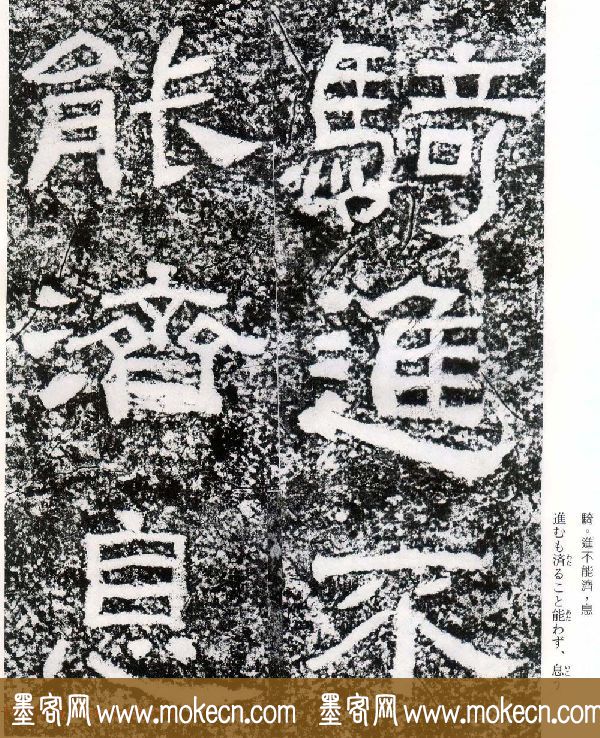 騎。進不能濟，息
進むも済ること能わず、息
騎進不
能濟息
墨客网 www.mokecn.com 墨客网 www.mokecn.com